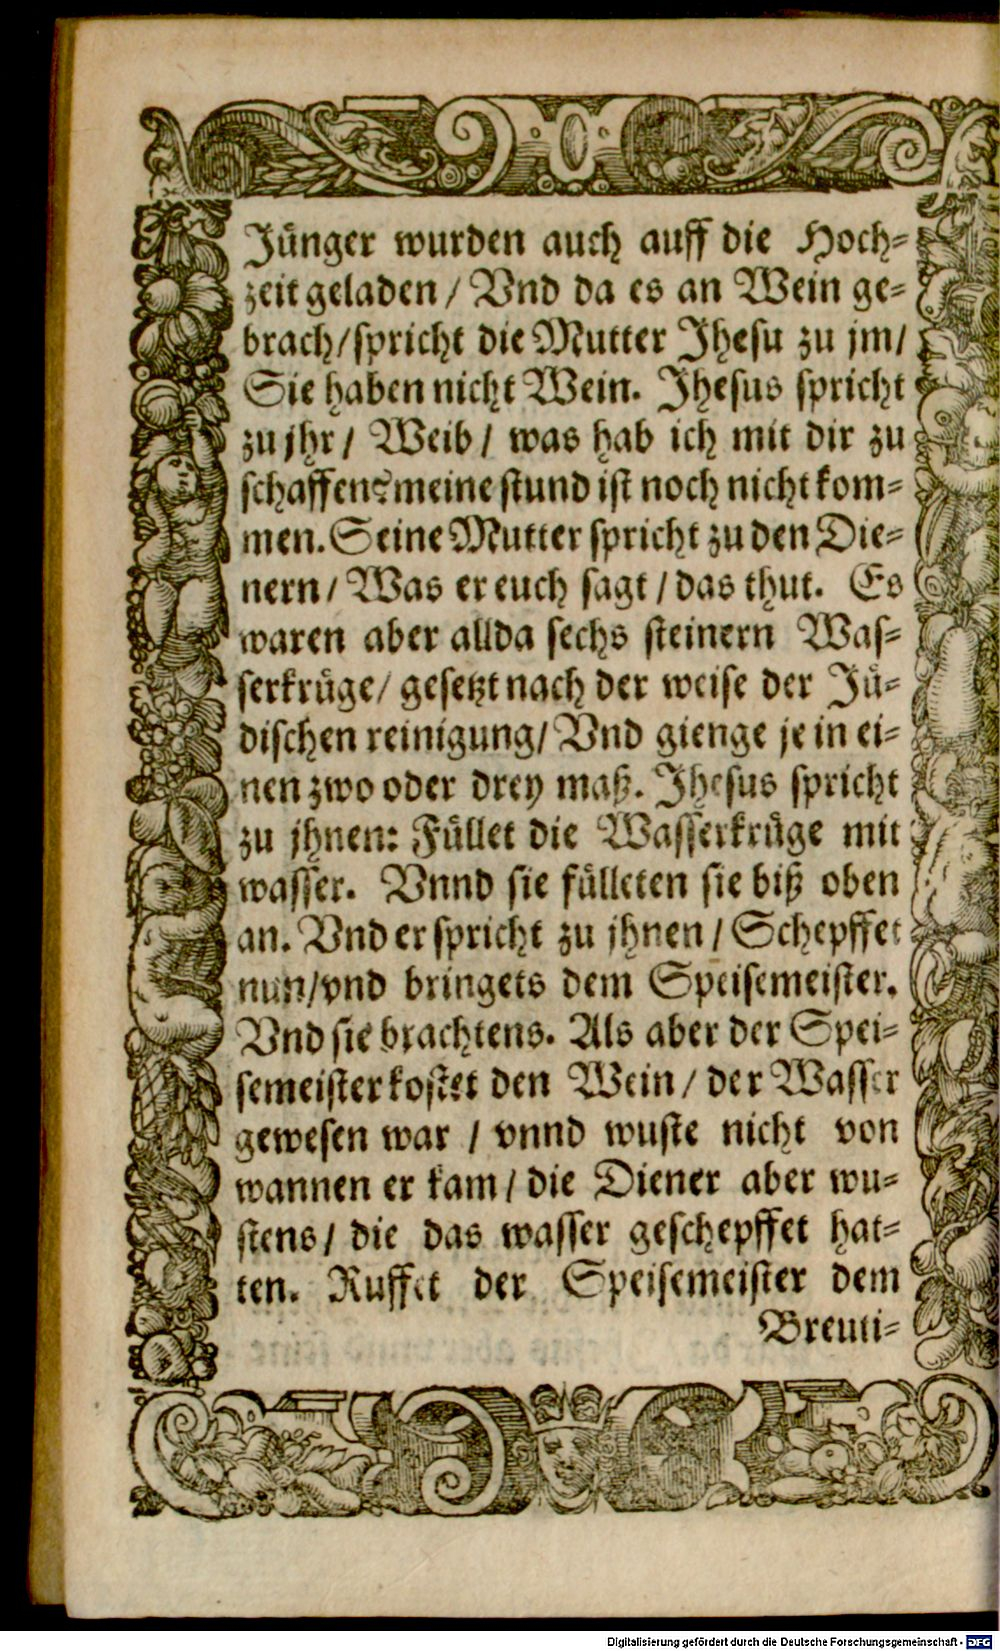 Jünger wurden auch auff die Hoch⸗
zeit geladen / Vnd da es an Wein ge⸗
brach / spricht die Mutter Jhesu zu jm /
Sie haben nicht Wein. Jhesus spricht
zu jhr / Weib / was hab ich mit dir zu
schaffen? meine stund ist noch nicht kom⸗
men. Seine Mutter spricht zu den Die⸗
nern / Was er euch sagt / das thut. Es
waren aber allda sechs steinern Was⸗
serkrüge / gesetzt nach der weise der Jü⸗
dischen reinigung / Vnd gienge je in ei⸗
nen zwo oder drey maß. Jhesus spricht
zu jhnen: Füllet die Wasserkrüge mit
wasser. Vnnd sie fülleten sie biß oben
an. Vnd er spricht zu jhnen / Schepffet
nun / vnd bringets dem Speisemeister.
Vnd sie brachtens. Als aber der Spei⸗
semeister kostet den Wein / der Wasser
gewesen war / vnnd wuste nicht von
wannen er kam / die Diener aber wu⸗
stens / die das wasser geschepffet hat⸗
ten. Ruffet der Speisemeister dem
Breuti⸗
Digitalisierung gefördert durch die Deutsche Forschungsgemeinschaft - DFG